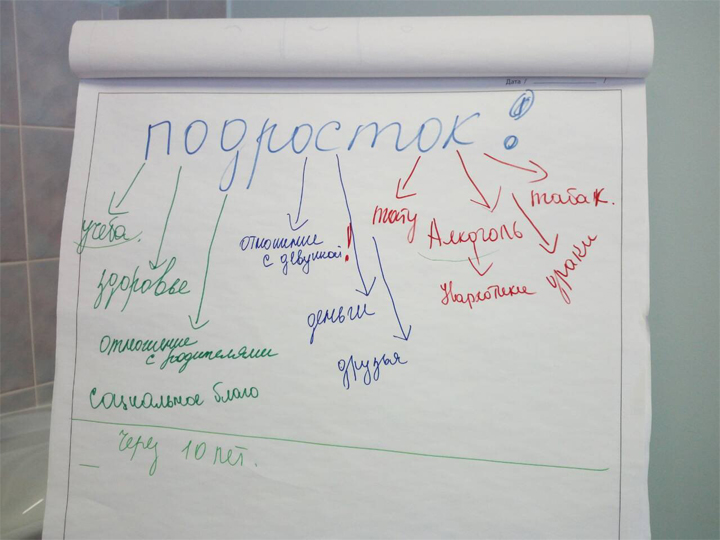 Дата /
подросток!
учёба.
здоровье
отношение
с родителями
социальное благо
отношение
с девушкой!
деньги
друзья
тату
Алкоголь
Наркотики
табак.
драки
Через 10 лет.